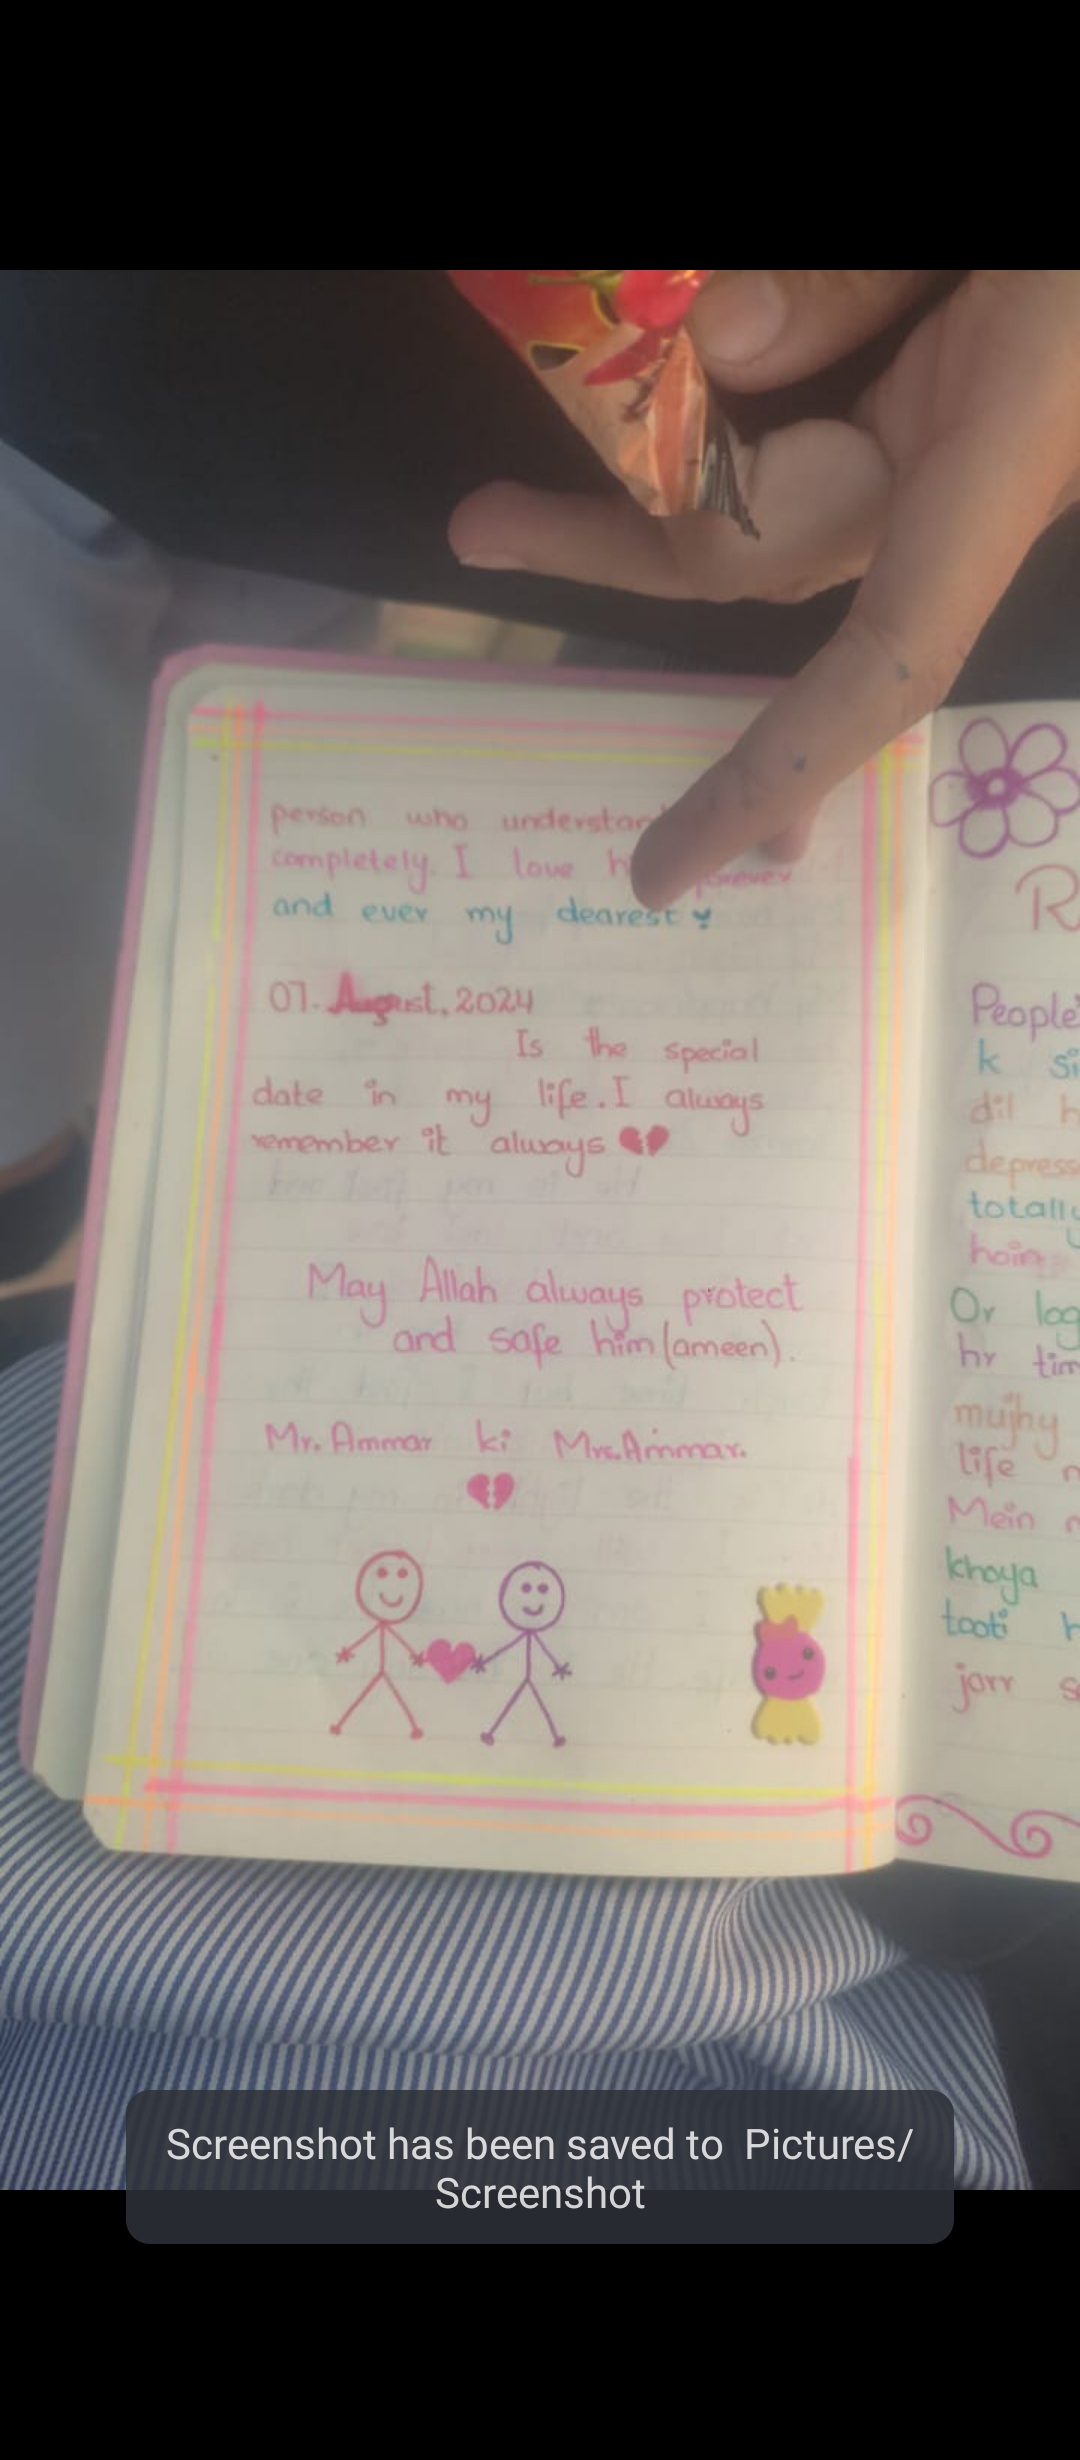 person who understan
completely. I love h forever
and ever my dearest
07. August, 2024
Is the special
date in my life. I always
remember it always
May Allah always protect
and safe him (ameen).
Mr. Ammar ki Mrs. Ammar.
R
People's
k si
dil h
depress
totally
hoin
Or log
hr tim
mujhy
life n
Mein n
khoya
tooti h
jorr s
Screenshot has been saved to Pictures/
Screenshot